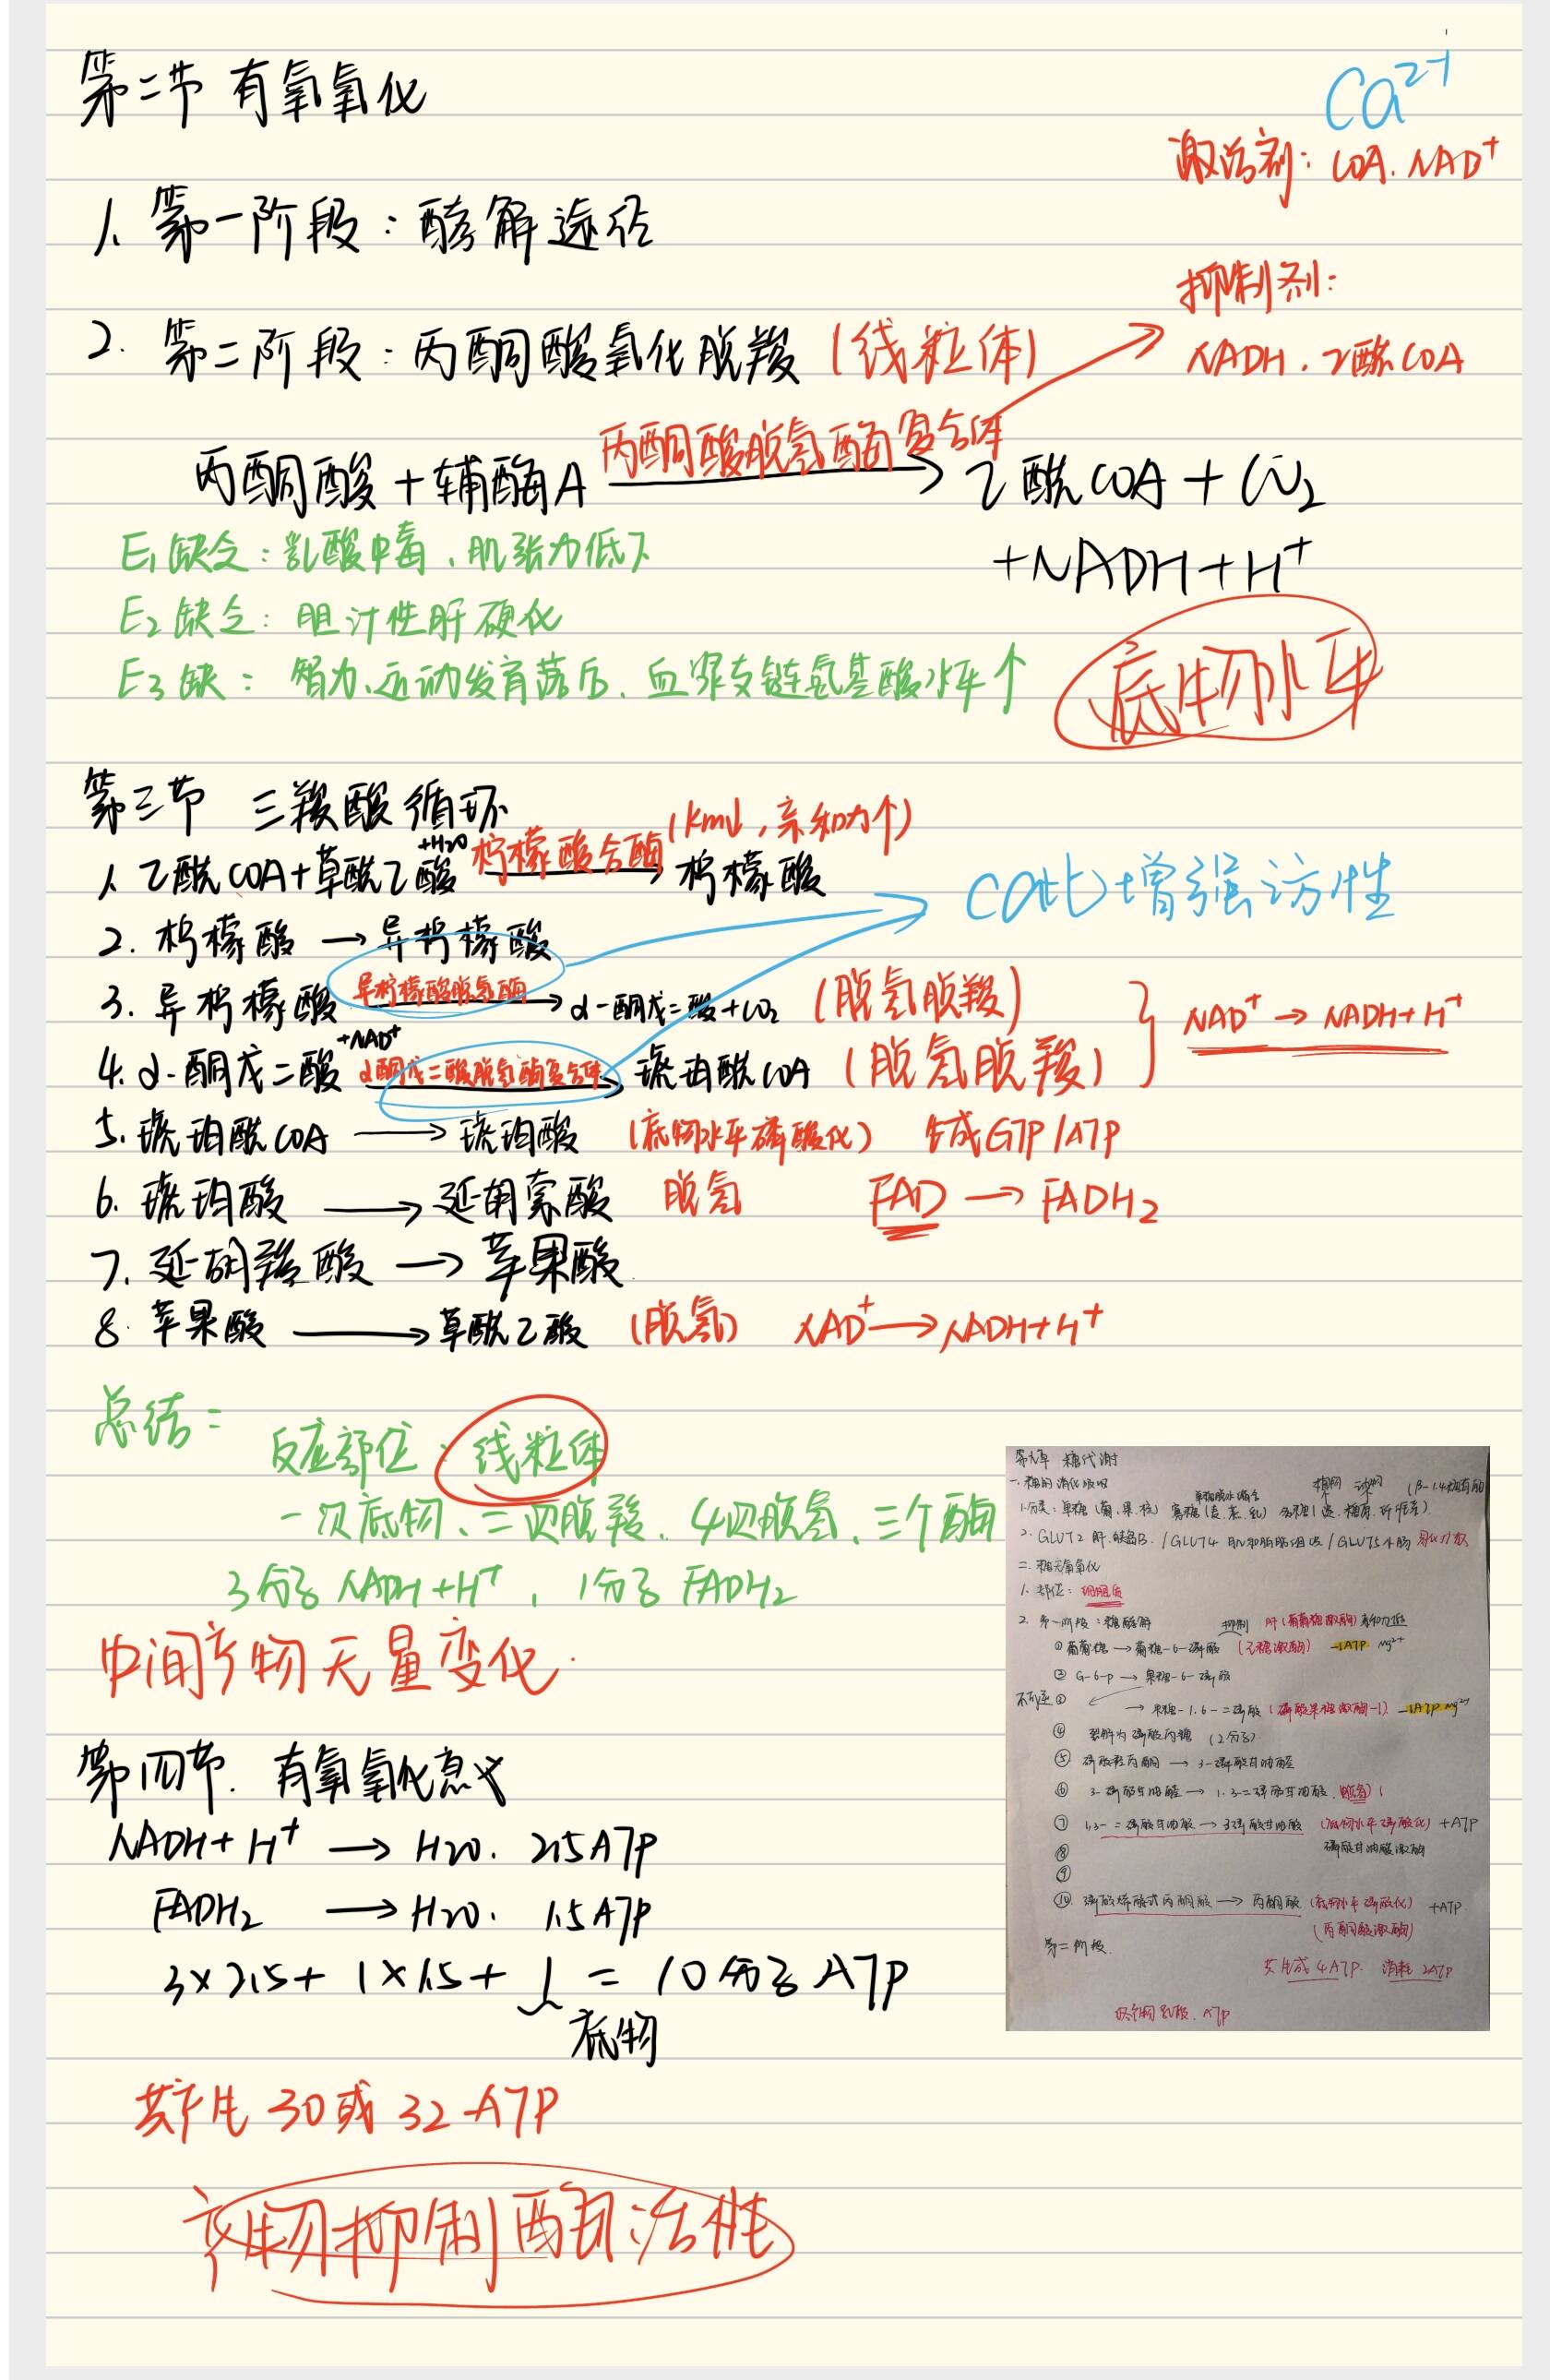 第二节 有氧氧化
Ca²⁺
激活剂: COA. NAD⁺
1. 第一阶段：酵解途径
抑制剂:
NADH. 乙酰COA
2. 第二阶段：丙酮酸氧化脱羧 (线粒体)
丙酮酸脱氢酶复合体
丙酮酸 + 辅酶A → 乙酰COA + CO₂
+NADH+H⁺
E₁缺乏：乳酸中毒、肌张力低下
E₂缺乏：胆汁性肝硬化
E₃缺： 智力、运动发育落后、血浆支链氨基酸水平↑
底物水平
第三节 三羧酸循环
1. 乙酰COA+草酰乙酸 +H2O 柠檬酸合酶 (Km↓, 亲和力↑) → 柠檬酸
2. 柠檬酸 → 异柠檬酸
增强
3. 异柠檬酸 异柠檬酸脱氢酶 → α-酮戊二酸+CO₂ (脱氢脱羧)
+NAD⁺
NAD⁺ → NADH+H⁺
4. α-酮戊二酸 α酮戊二酸脱氢酶复合体 → 琥珀酰COA (脱氢脱羧)
5. 琥珀酰COA → 琥珀酸 (底物水平磷酸化) 生成GTP/ATP
6. 琥珀酸 → 延胡索酸 脱氢 FAD → FADH₂
7. 延胡羧酸 → 苹果酸
8. 苹果酸 → 草酰乙酸 (脱氢) NAD⁺ → NADH+H⁺
总结：
反应部位：线粒体
一次底物、二次脱羧、4次脱氢、三个酶
3分子 NADH+H⁺, 1分子 FADH₂
中间产物无量变化.
第四节. 有氧氧化意义
NADH+H⁺ → H2O. 2.5ATP
FADH₂ → H2O. 1.5ATP
3×2.5+ 1×1.5+ 1 = 10分子ATP
底物
共产生 30或 32 ATP
产物抑制酶活性
第九章 糖代谢
一. 糖的消化吸收
1. 分类：单糖 (葡、果、核)
2. GLUT2 肝、胰岛B. / GLUT4 肌和脂肪组织 / GLUT5 小肠
二. 糖无氧氧化
1. 部位：细胞质
2. 第一阶段：糖酵解 抑制 肝(葡萄糖激酶) 亲和力低
① 葡萄糖 → 葡糖-6-磷酸 (己糖激酶) -1ATP Mg²⁺
② G-6-P → 果糖-6-磷酸
不可逆 ③ → 果糖-1.6-二磷酸 (磷酸果糖激酶-1) -1ATP Mg²⁺
④ 裂解为磷酸丙糖 (2分子)
⑤ 磷酸羟丙酮 → 3-磷酸甘油醛
⑥ 3-磷酸甘油醛 → 1.3-二磷酸甘油酸. (脱氢)
⑦ 1,3-二磷酸甘油酸 → 3磷酸甘油酸 (底物水平磷酸化) +ATP
磷酸甘油酸激酶
⑧
⑨
⑩ 磷酸烯醇式丙酮酸 → 丙酮酸 (底物水平磷酸化) +ATP.
(丙酮酸激酶)
第二阶段.
共生成 4ATP. 消耗 2ATP
乳酸. ATP